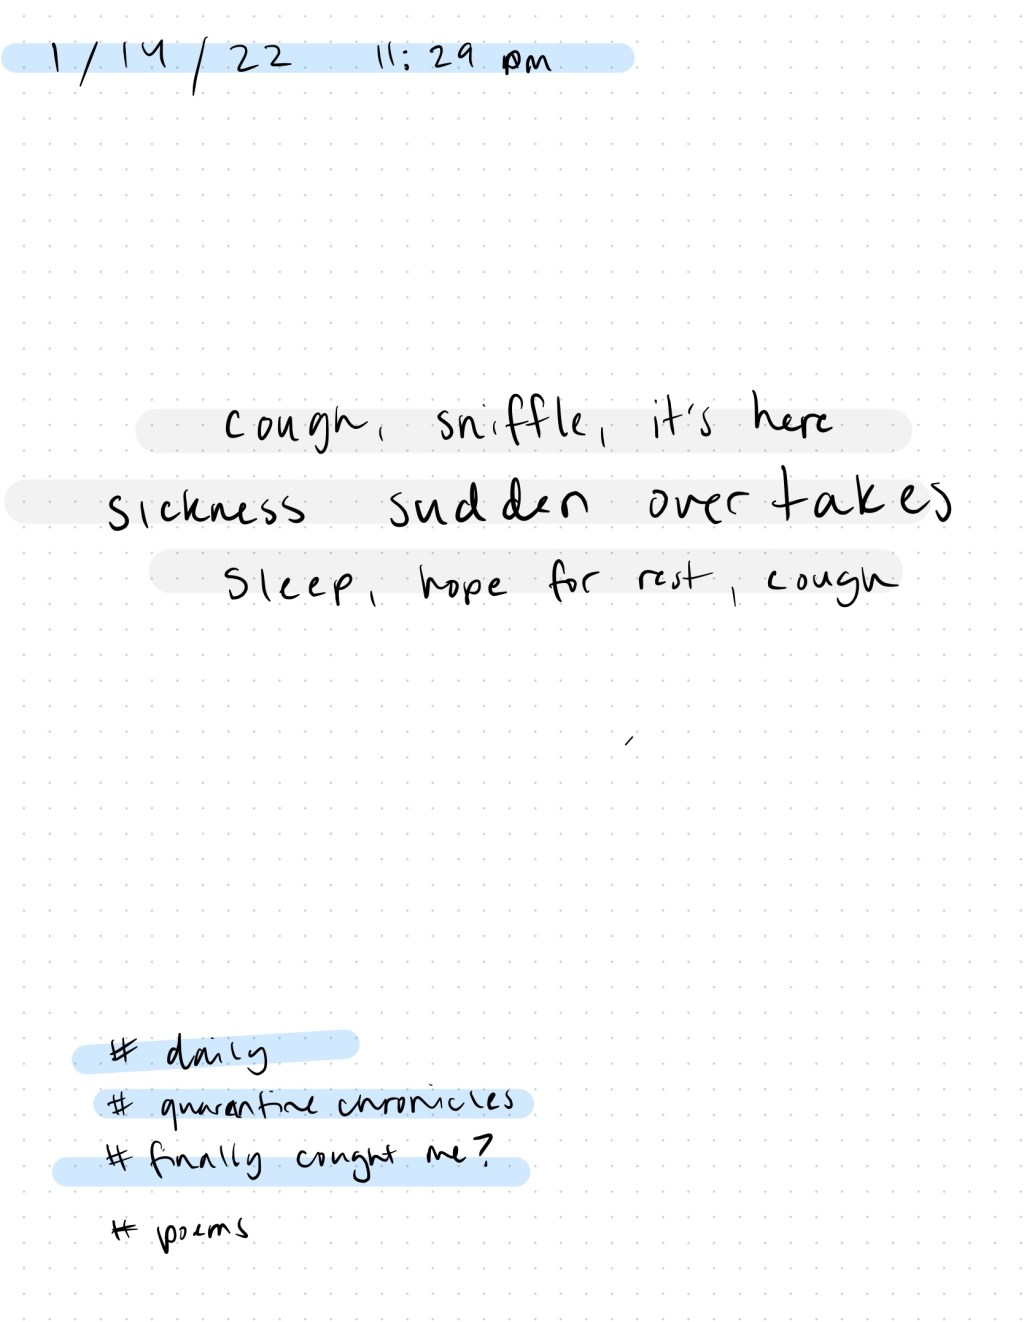 1/14/22 11:29 pm
cough, sniffle, it's here
sickness sudden overtakes
sleep, hope for rest, cough
# daily
# quarantine chronicles
# finally caught me?
# poems